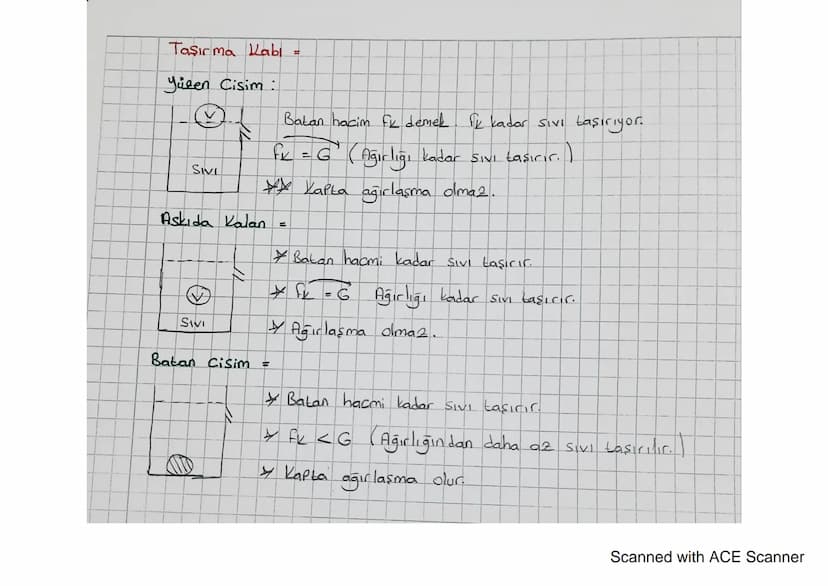 Taşırma Kabı =
Yüzen Cisim :
V
Batan hacim Fk demek. Fk kadar sıvı taşırıyor.
Fk = G (Ağırlığı kadar sıvı taşırır.)
SIVI
** Kapta ağırlaşma olmaz.
Askıda Kalan =
* Batan hacmi kadar sıvı taşırır.
V
* Fk = G Ağırlığı kadar sıvı taşırır.
SIVI
* Ağırlaşma olmaz.
Batan Cisim =
* Batan hacmi kadar sıvı taşırır.
* Fk < G (Ağırlığından daha az sıvı taşırılır.)
* Kapta ağırlaşma olur.
Scanned with ACE Scanner